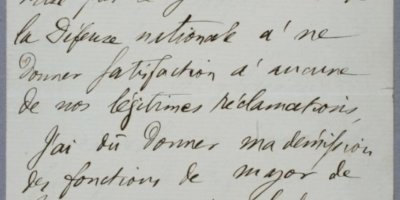 la Défense nationale à ne
donner satisfaction à aucune
de nos légitimes réclamations,
J'ai dû donner ma démission
des fonctions de major de